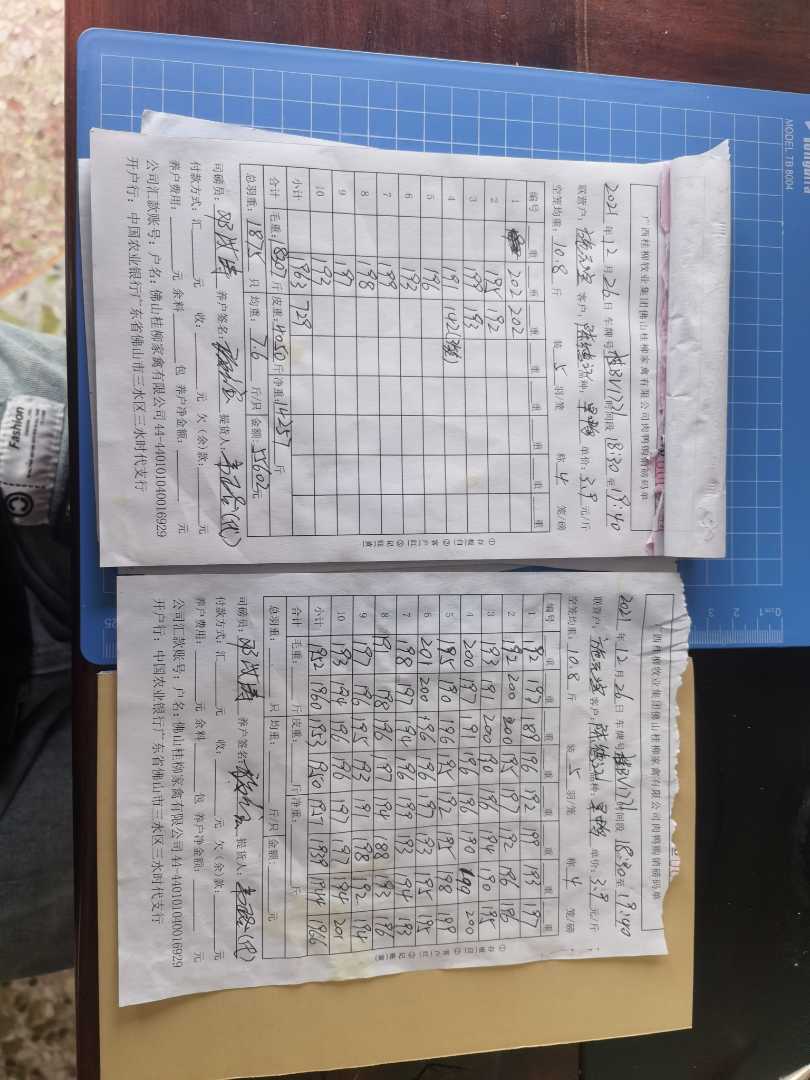 广西桂柳牧业集团佛山桂柳家禽有限公司肉鸭购销磅码单
2021年12月26日 车牌号 桂BV1721 时间段 18:30至19:40
联营户: 客户: 品种: 单价:3.9元/斤
空笼均重:10.8斤 装5羽/笼 称4笼/磅
编号 重 重 重 重 重 重 重 重
1 202 202
2 195 192
3 199 193
4 191 142(3笼)
5 196
6 193
7 199
8 198
9 197
10 192
小计 1963 729
合计 毛重:18307斤 皮重:4050斤 净重:14257斤
总羽重:1875只 均重:7.6斤/只 金额:55602元
司磅员: 养户签名: 提货人:
付款方式:汇 元 收: 元 欠(余)款: 元
养户费用: 元 余料 包 养户净金额: 元
公司汇款账号:户名:佛山桂柳家禽有限公司 44-440101040016929
开户行:中国农业银行广东省佛山市三水区三水时代支行
广西桂柳牧业集团佛山桂柳家禽有限公司肉鸭购销磅码单
2021年12月26日 车牌号 桂BV1721 时间段 18:30至19:40
联营户: 客户: 品种: 单价:3.9元/斤
空笼均重:10.8斤 装5羽/笼 称4笼/磅
编号 重 重 重 重 重 重 重 重
1 192 197 189 196 192 199 193 197
2 192 200 200 195 197 192 196 196
3 193 191 200 190 196 194 190 195
4 200 197 191 196 196 190 190 200
5 195 190 196 195 192 195 198 199
6 201 200 196 196 197 193 195 195
7 198 197 194 196 199 193 194 193
8 191 198 196 197 194 188 193 196
9 197 196 195 193 191 198 192 194
10 193 194 196 196 197 197 194 201
小计 1952 1960 1953 1950 1951 1939 1944 1966
合计 毛重: 斤 皮重: 斤 净重: 斤
总羽重: 只 均重: 斤/只 金额: 元
司磅员: 养户签名: 提货人:
付款方式:汇 元 收: 元 欠(余)款: 元
养户费用: 元 余料 包 养户净金额: 元
公司汇款账号:户名:佛山桂柳家禽有限公司 44-440101040016929
开户行:中国农业银行广东省佛山市三水区三水时代支行
MODEL TB 8004
Fashion